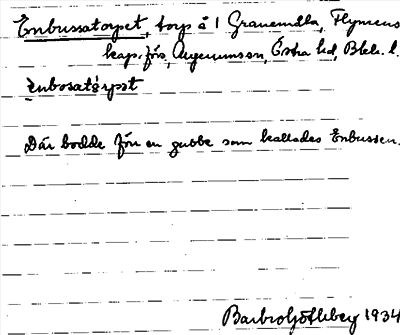 Enbussatorpet, torp å 1 Granemåla, Flymens
kap. förs, Augerumssn, Östra hd, Blek. l.
Enbosatårpst
Där bodde förr en gubbe som kallades Enbussen.
Barbro Götheby 1934